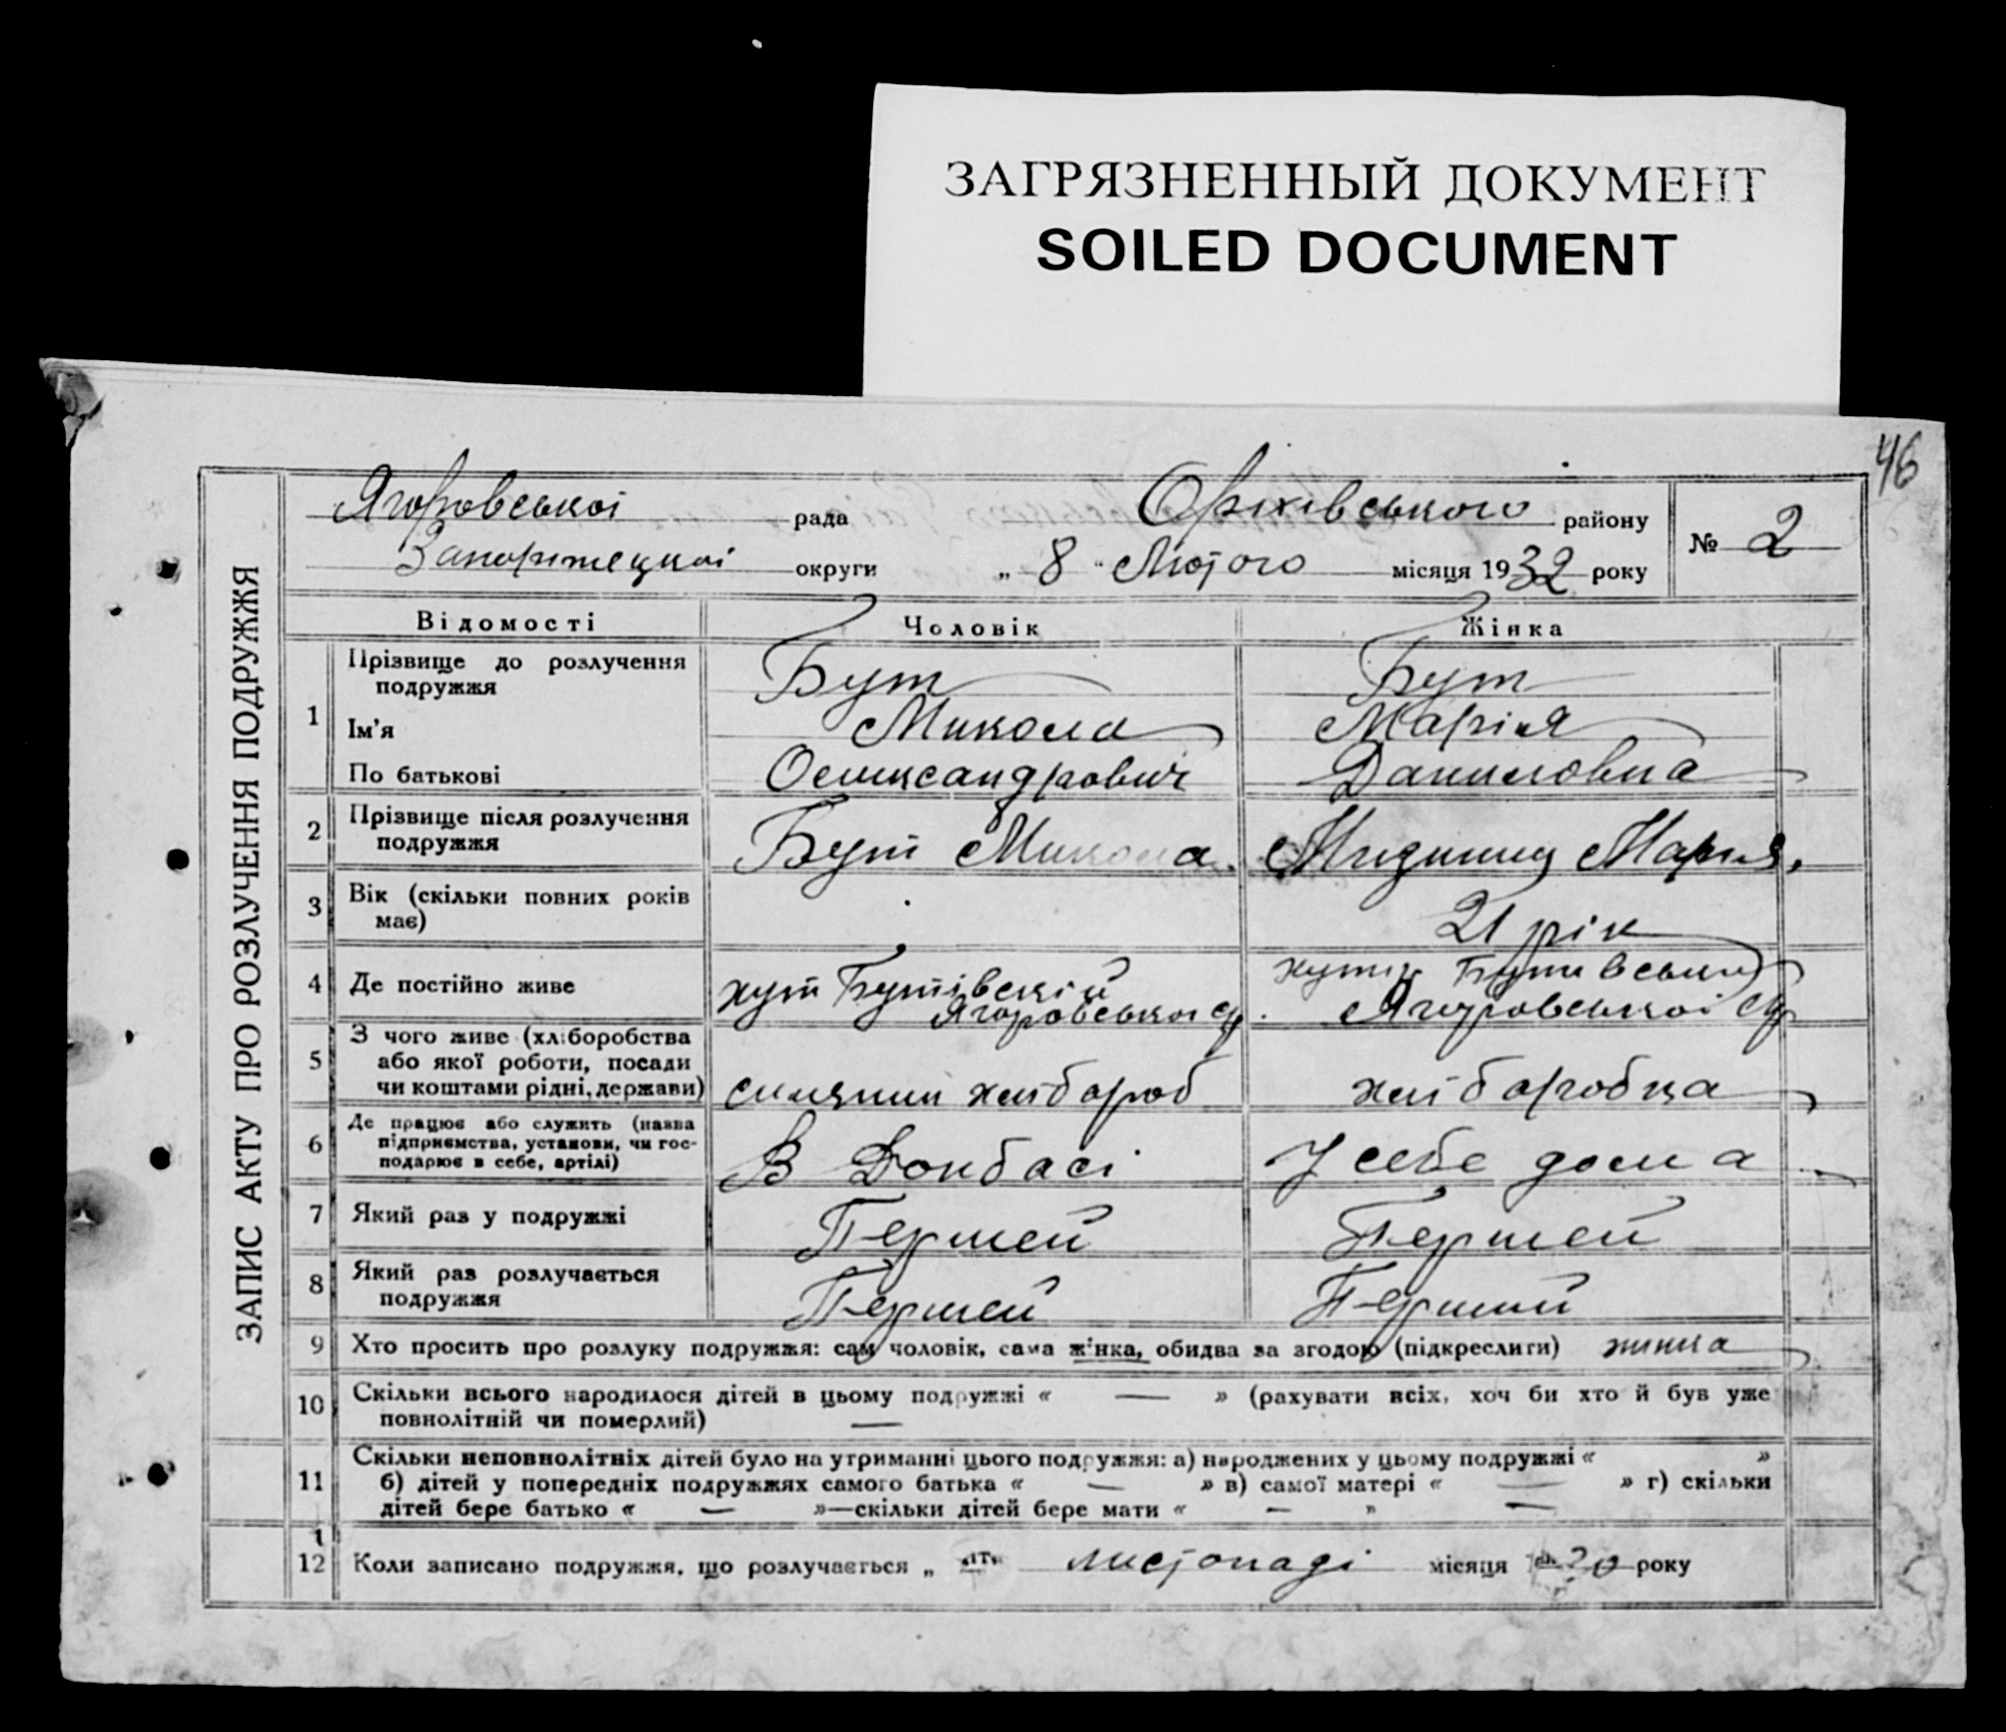 ЗАГРЯЗНЕННЫЙ ДОКУМЕНТ
SOILED DOCUMENT
46
ЗАПИС АКТУ ПРО РОЗЛУЧЕННЯ ПОДРУЖЖЯ
Ягоровської рада Оріхівського району
округи „ 8 " Лютого місяця 1932 року
№ 2
Відомості Чоловік Жінка
1
Прізвище до розлучення Бут Бут
подружжя
Ім'я Микола Марія
По батькові Олександрович Даниловна
2 Прізвище після розлучення Бут Микола Мария
подружжя
3 Вік (скільки повних років 21 рік
має)
4 Де постійно живе хут Бутівский хутір
Ягоровської ср. Ягоровської ср
5 З чого живе (хліборобства
або якої роботи, посади
чи коштами рідні, держави) хлібороб хліборобка
6 Де працює або служить (назва
підприємства, установи, чи гос-
подарює в себе, артілі) В Донбасі У себе дома
7 Який раз у подружжі Першей Першей
8 Який раз розлучається Першей
подружжя
9 Хто просить про розлуку подружжя: сам чоловік, сама жінка, обидва за згодою (підкреслити) жинка
10 Скільки всього народилося дітей в цьому подружжі « — » (рахувати всіх, хоч би хто й був уже
повнолітній чи померлий) —
11 Скільки неповнолітніх дітей було на утриманні цього подружжя: а) народжених у цьому подружжі « »
б) дітей у попередніх подружжях самого батька « — » в) самої матері « — » г) скільки
дітей бере батько « — »—скільки дітей бере мати « — » —
12 Коли записано подружжя, що розлучається „ листопаді місяця року